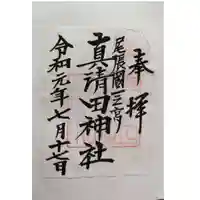 奉拝
尾張國一之宮
真清田神社
令和元年七月十七日